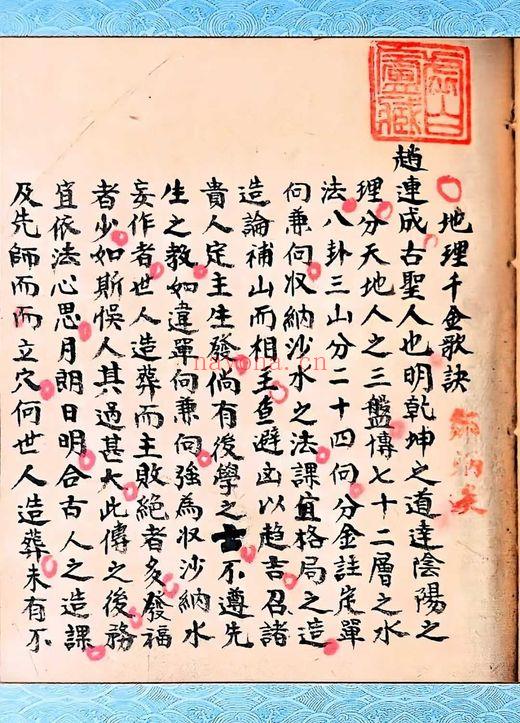 虛白廬藏
地理千金歌訣
趙連成古聖人也明乾坤之道達陰陽之
理分天地人之三盤傳七十二層之水
法八卦三山分二十四向分金註定單
向兼向収納沙水之法課宜格局之造
造論補山而相主魚避凶以趨吉召諸
貴人定主生發倘有後學之士不遵先
生之教如違單向兼向強為収沙納水
妄作者世人造葬而主敗絕者多發福
者少如斯悮人其過甚大此傳之後務
宜依法心思月朗日明合古人之造課
及先師而而立穴何世人造葬未有不
nayona.cn